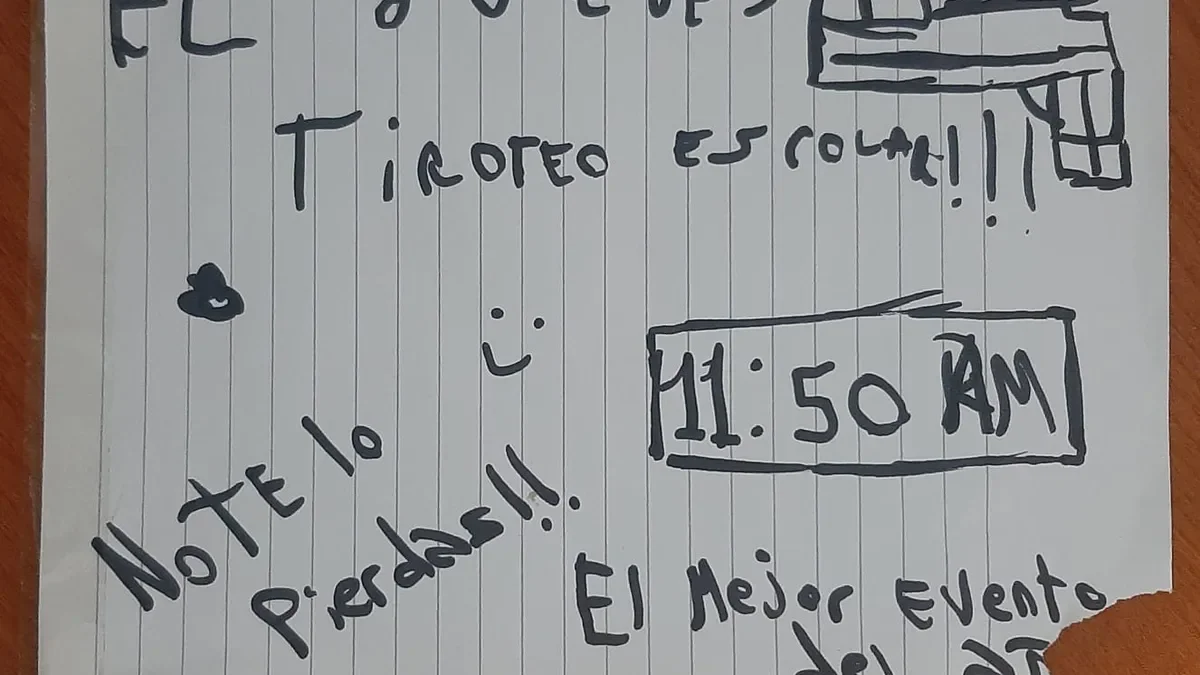 EL JUEVES
TIROTEO ESCOLAR!!!
11:50 AM
NO TE lo
pierdas!!!
El Mejor Evento
del